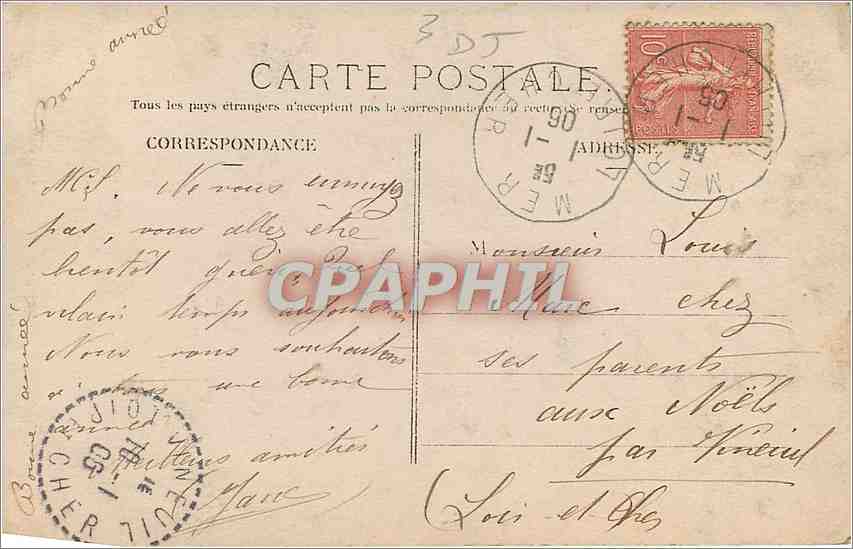 Bonne année!
3 DJ
CARTE POSTALE
Tous les pays étrangers n'acceptent pas la correspondance au recto (Se renseigner
CORRESPONDANCE
ADRESSE
Ne vous ennuyez
pas, vous allez être
bientôt guéri. Quel
vilain temps aujourd'hui
Nous vous souhaitons
une bonne
année
amitiés
Marc
Bonne année!
Monsieur Louis
Marc chez
ses parents
aux Noëls
par Vineuil
(Loir-et-Cher
10c
MER
1-1
05
MER
1-1
05
VINEUIL
LOIR
CHER
1
05
CPAPHIL